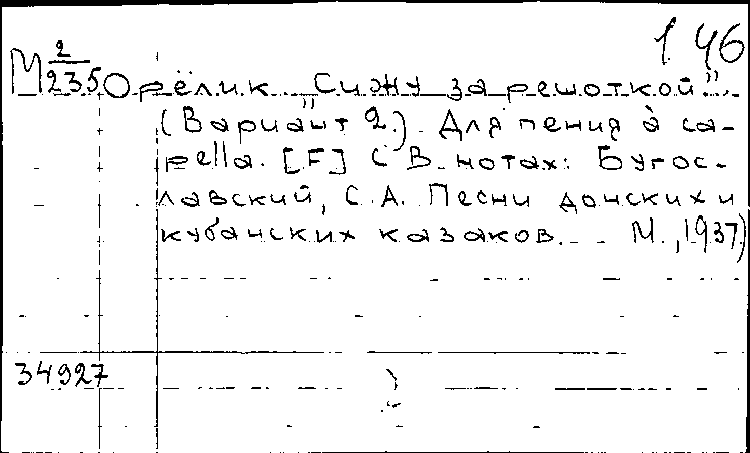 1 46
М 2/235 Орёлик „Сижу за решоткой"...
(Вариант 2.). Для пения à ca-
pella. [F] С В. нотах: Бугос-
лавский, С.А. Песни донских и
кубанских казаков. _ _ М., 1937)
34927